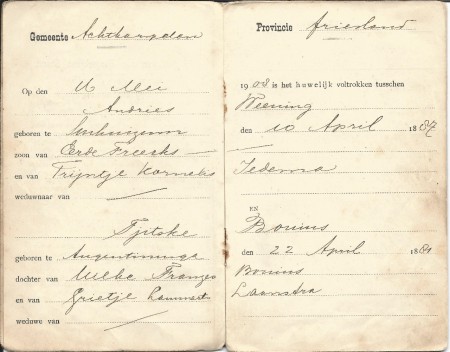 Gemeente Achtkarspelen
Op den 14 Mei
Andries
geboren te Surhuizum
zoon van Eede Freerks
en van Trijntje Kornelis
weduwnaar van
Tjitske
geboren te Augustinusga
dochter van Uilke Franzes
en van Grietje Lammerts
weduwe van
Provincie Friesland
1908 is het huwelijk voltrokken tusschen
Weening
den 10 April 1887
Tedema
EN
Bouius
den 22 April 188
Bouius
Laanstra